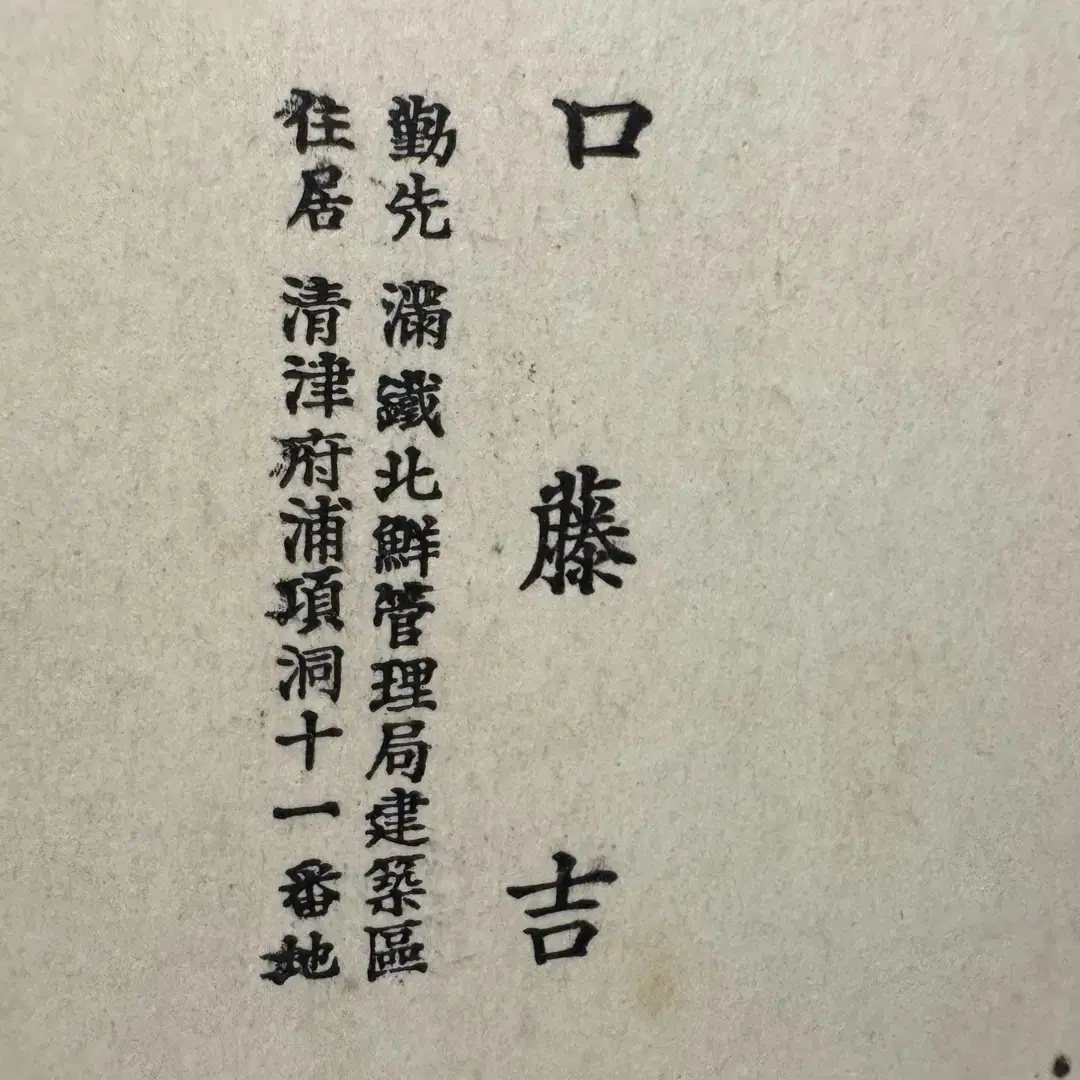 口藤吉
勤先 滿鐵北鮮管理局建築區
住居 清津府浦項洞十一番地